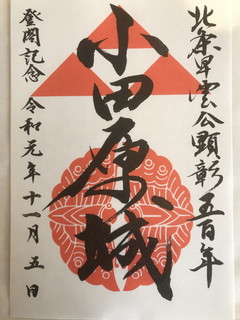 北条早雲公顕彰五百年
小田原城
登閣記念 令和元年十一月五日